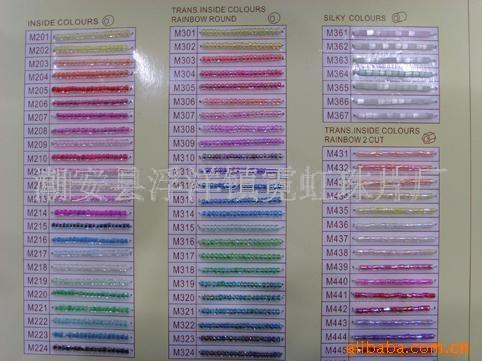 INSIDE COLOURS
M201
M202
M203
M204
M205
M206
M207
M208
M209
M210
M214
M215
M216
M217
M218
M219
M220
M221
M222
M223
M224
TRANS.INSIDE COLOURS
RAINBOW ROUND
M301
M302
M303
M304
M305
M306
M307
M308
M309
M310
M313
M314
M315
M316
M317
M318
M319
M320
M321
M322
M323
M324
SILKY COLOURS
M361
M362
M363
M364
M365
M366
M367
TRANS.INSIDE COLOURS
RAINBOW 2 CUT
M431
M432
M434
M435
M436
M437
M438
M439
M440
M441
M442
M443
M444
潮安县浮洋镇霓虹珠片厂
alibaba.com.cn